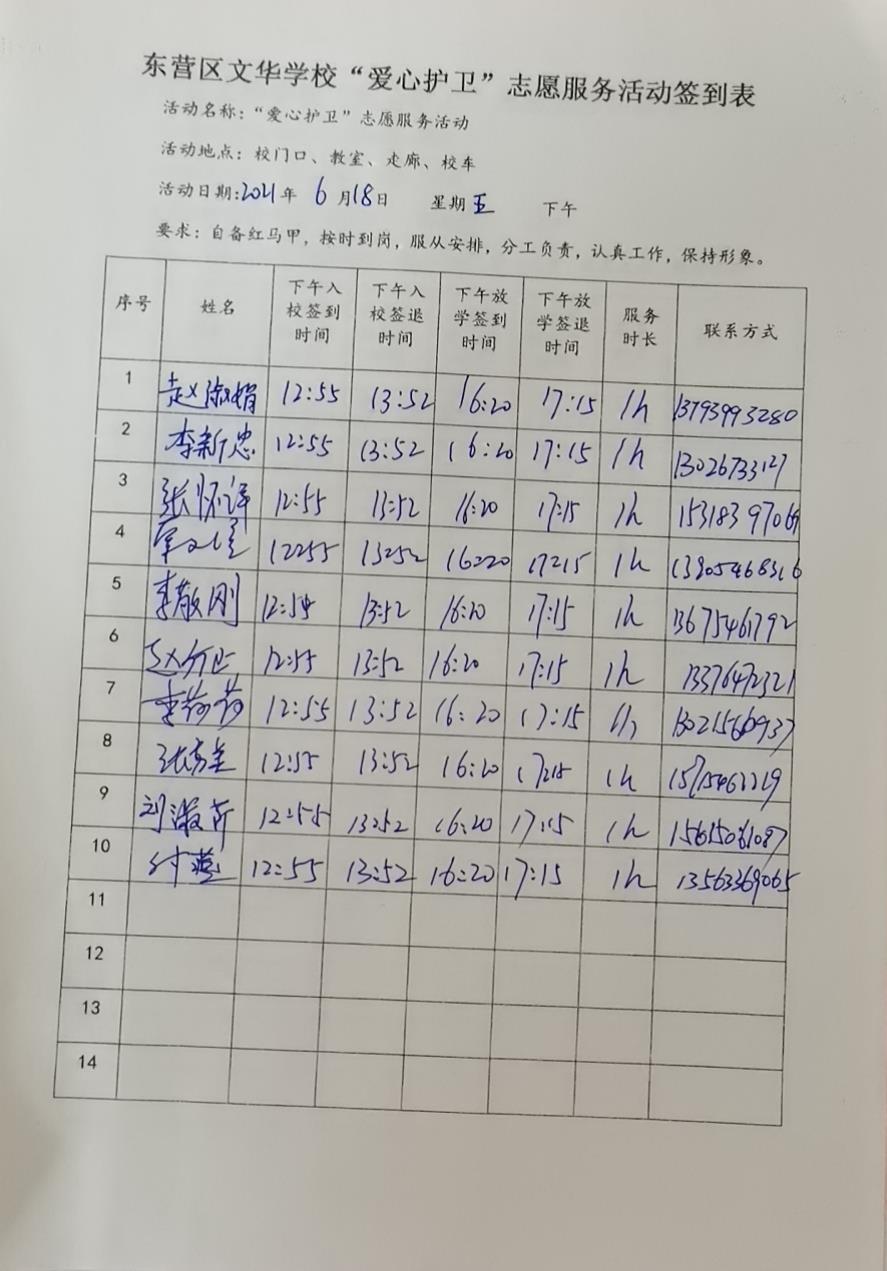 东营区文华学校“爱心护卫”志愿服务活动签到表
活动名称：“爱心护卫”志愿服务活动
活动地点：校门口、教室、走廊、校车
活动日期:2021年 6月18日 星期五 下午
要求：自备红马甲，按时到岗，服从安排，分工负责，认真工作，保持形象。
序号 姓名 下午入校签到时间 下午入校签退时间 下午放学签到时间 下午放学签退时间 服务时长 联系方式
1 赵淑娟 12:55 13:52 16:20 17:15 1h 13793993280
2 李新忠 12:55 13:52 16:20 17:15 1h 13026733127
3 张怀译 12:55 13:52 16:20 17:15 1h
4 12:55 13:52 16:20 17:15 1h 13905468316
5 李敬刚 12:54 13:52 16:20 17:15 1h 13675461792
6 12:55 13:52 16:20 17:15 1h 13376472321
7 李荷荷 12:55 13:52 16:20 17:15 1h
8 12:55 13:52 16:20 17:15 1h
9 刘淑芹 12:55 13:52 16:20 17:15 1h 15615061087
10 付燕 12:55 13:52 16:20 17:15 1h 13563369065
11
12
13
14